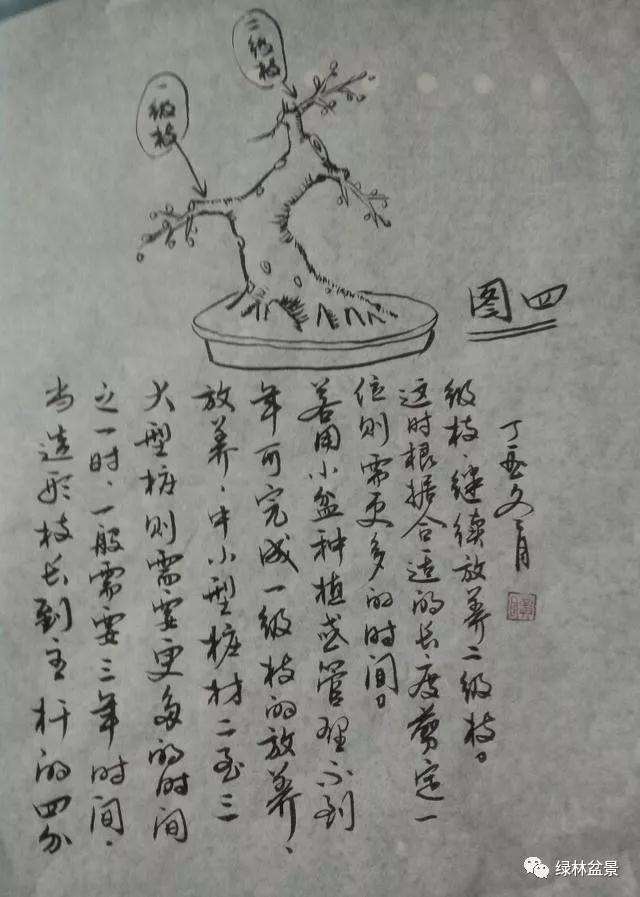 二级枝
一级枝
图四
当造形枝长到主杆的四分
之一时，一般需要三年时间，
大型桩则需要更多的时间
放养，中小型桩材二至三
年可完成一级枝的放养，
若用小盆种植或管理不到
位则需更多的时间。
这时根据合适的长度剪定一
级枝，继续放养二级枝。
丁酉冬月
绿林盆景